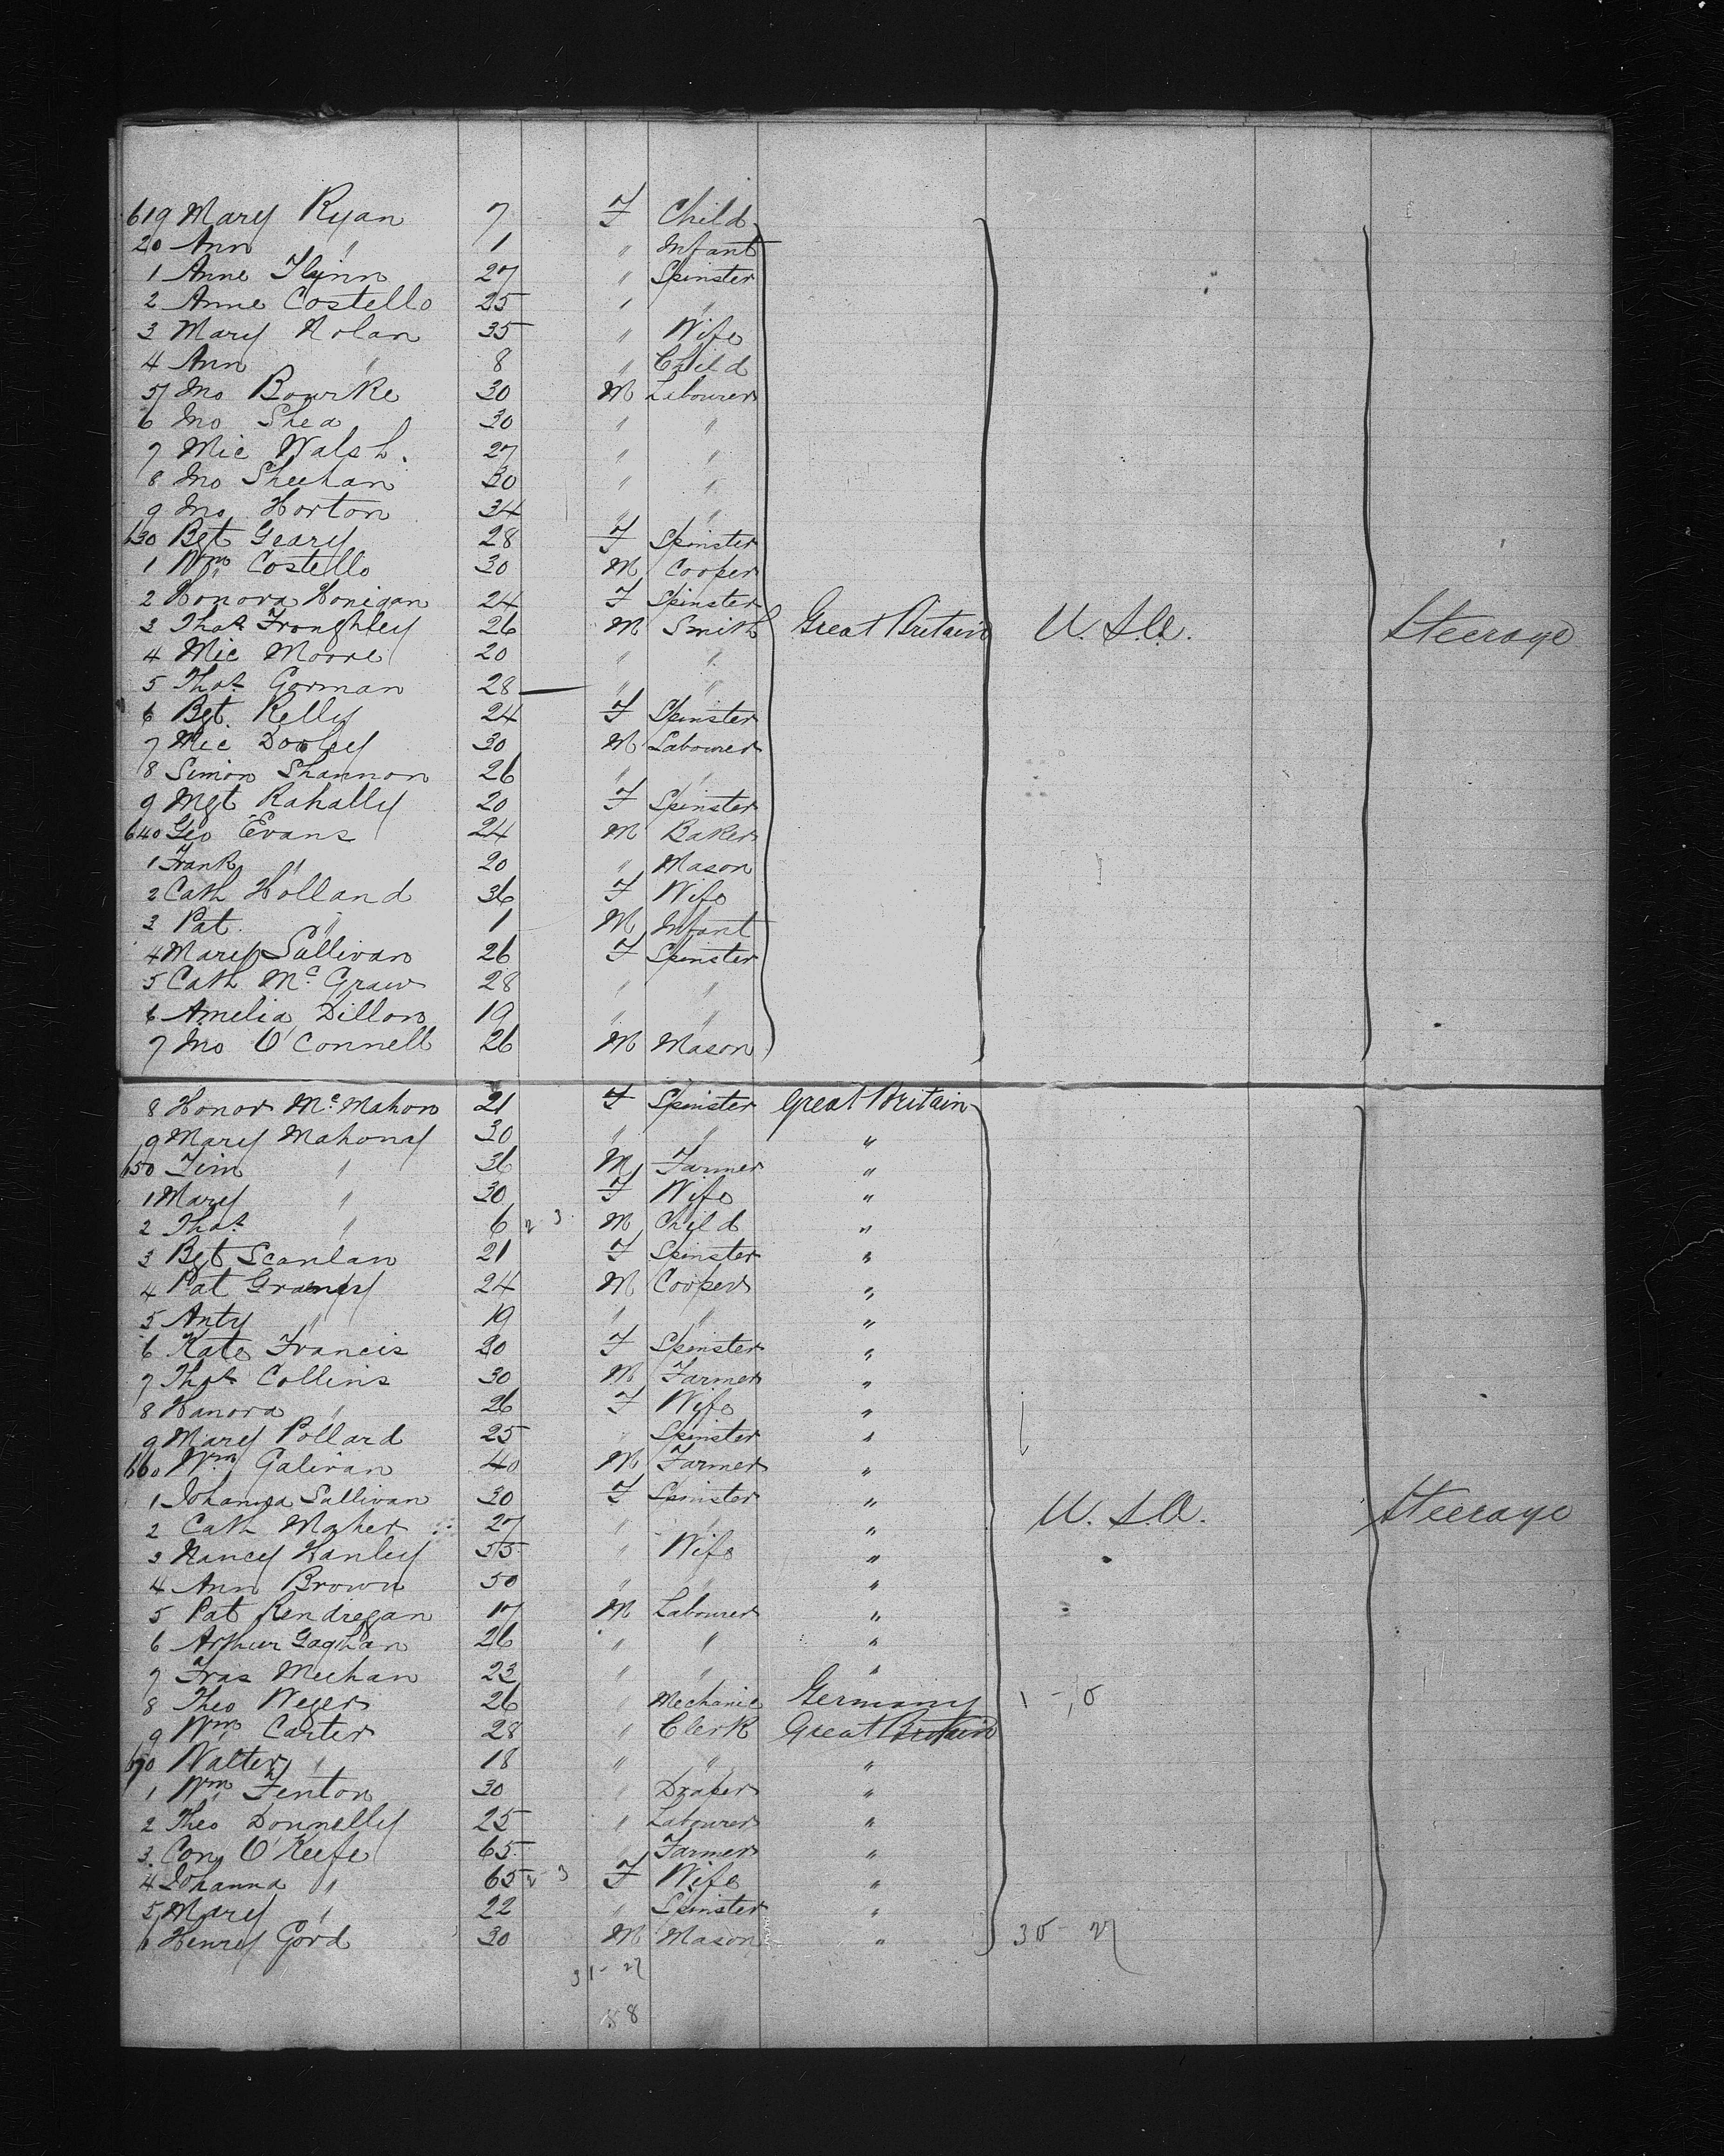 619 Mary Ryan 7 F Child
20 Ann " 1 " Infant
1 Anne Flynn 27 " Spinster
2 Anne Costello 25 " "
3 Mary Nolan 35 " Wife
4 Ann " 8 " Child
5 Jno Bourke 30 M Labourer
6 Jno Shea 30 " "
7 Mic Walsh. 27 " "
8 Jno Sheehan 30 " "
9 Jno Horton 34 " "
630 Bgt Geary 28 F Spinster
1 Wm Costello 30 M Cooper
2 Honora Honigan 24 F Spinster
3 Thos Froughley 26 M Smith Great Britain U.S.A. Steerage
4 Mic Moore 20 " "
5 Thos Gorman 28 " "
6 Bgt. Kelly 24 F Spinster
7 Mic Dooley 30 M Labourer
8 Simon Shannon 26 " "
9 Mgt Rahally 20 F Spinster
640 Geo Evans 24 M Baker
1 Frank " 20 " Mason
2 Cath Holland 36 F Wife
3 Pat. " 1 M Infant
4 Mary Sullivan 26 F Spinster
5 Cath McGraw 28 " "
6 Amelia Dillon 19 " "
7 Jno O'Connell 26 M Mason
8 Honor McMahon 21 F Spinster Great Britain
9 Mary Mahony 30 " " "
650 Tim " 36 M Farmer "
1 Mary " 30 F Wife "
2 Thos " 6 2 3 M Child "
3 Bgt Scanlan 21 F Spinster "
4 Pat 24 M Cooper "
5 Anty " 19 " " "
6 Kate Francis 20 F Spinster "
7 Thos Collins 30 M Farmer "
8 Hanora " 26 F Wife "
9 Mary Pollard 25 " Spinster "
660 Wm Galivan 40 M Farmer "
1 Johanna Sullivan 30 F Spinster " U.S.A. Steerage
2 Cath Maher 27 " " "
3 Nancy Hanley 55 " Wife "
4 Ann Brown 50 " " "
5 Pat Rendregan 17 M Labourer "
6 Arthur Gaghan 26 " " "
7 Fras Meehan 23 " " "
8 Theo Weger 26 " Mechanic Germany
9 Wm Carter 28 " Clerk Great Britain
670 Walter " 18 " " "
1 Wm Fenton 30 " Draper "
2 Theo Donnelly 25 " Labourer "
3. Con O'Keefe 65 " Farmer "
4 Johanna " 65 2 3 F Wife "
5 Mary " 22 " Spinster "
6 Henry Gord 30 M Mason "
31-27
88